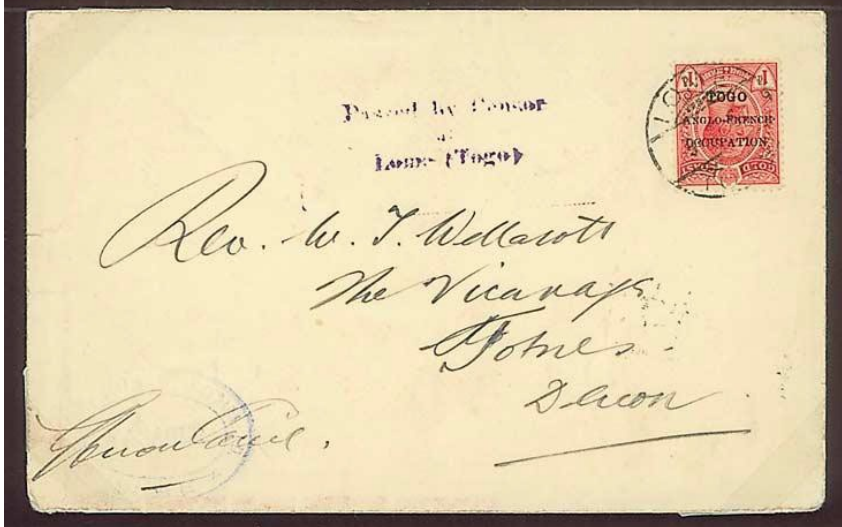 Passed by Censor
at
Lome (Togo)
TOGO
ANGLO-FRENCH
OCCUPATION
LOME
Rev. W. T. Wellacott
The Vicarage
Totnes
Devon